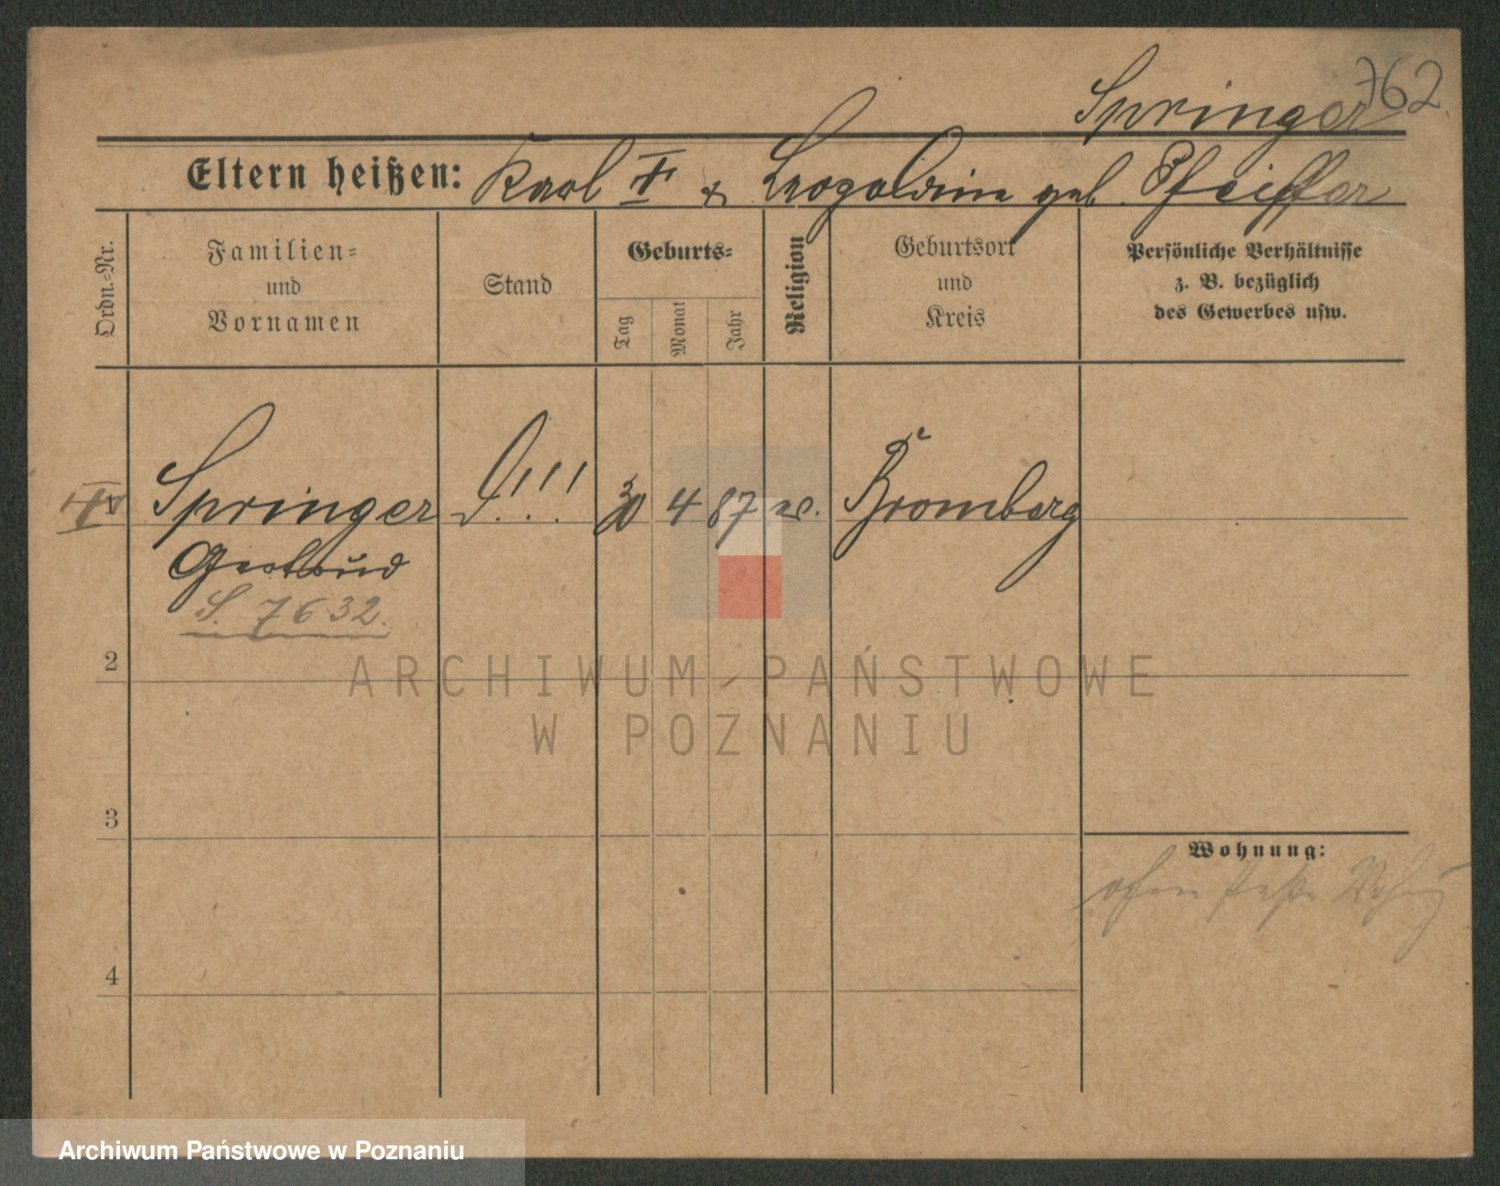 762
Springer
Eltern heißen: Karl † & Leopoldine geb. Pfeiffer
Ordn.-Nr.
Familien-
und
Vornamen
Stand
Geburts-
Tag
Monat
Jahr
Religion
Geburtsort
und
Kreis
Persönliche Verhältnisse
z. B. bezüglich
des Gewerbes usw.
Springer 30 4 87 Bromberg
Gertrud
S. 7632.
2
3
4
Wohnung:
ohne feste Wohng
ARCHIWUM PAŃSTWOWE
W POZNANIU
Archiwum Państwowe w Poznaniu